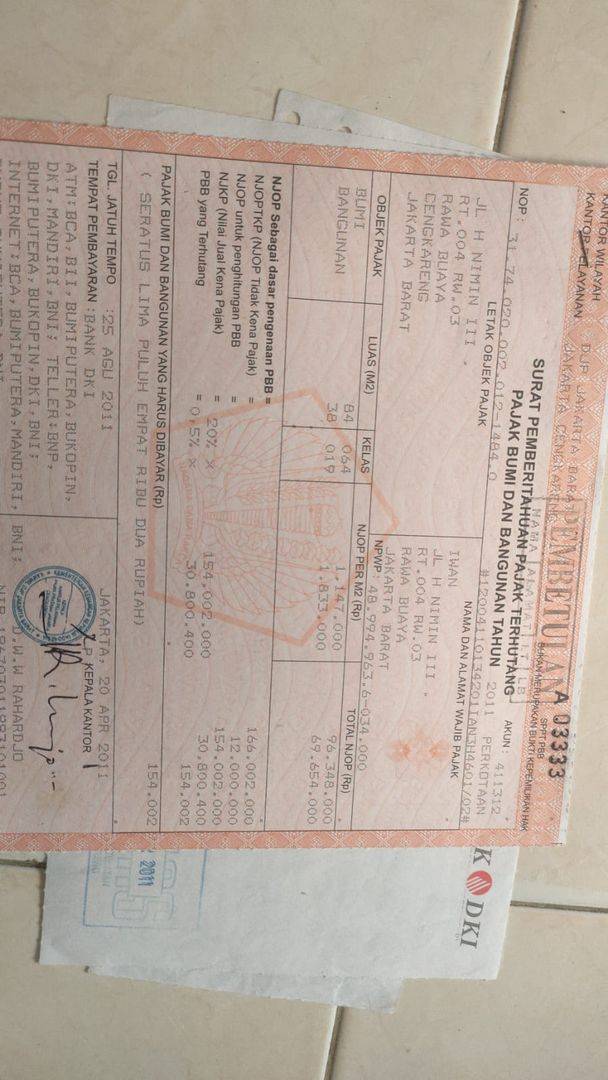 KANTOR WILAYAH DJP JAKARTA BARAT
KANTOR PELAYANAN JAKARTA CENGKARENG
PEMBETULAN
NAMA ALAMAT LT LB
A 03333
SPPT PBB
BUKAN MERUPAKAN BUKTI KEPEMILIKAN HAK
SURAT PEMBERITAHUAN PAJAK TERHUTANG
AKUN: 411312
PAJAK BUMI DAN BANGUNAN TAHUN 2011 PERKOTAAN
NOP: 31.74.020.002.012-1484.0
LETAK OBJEK PAJAK
NAMA DAN ALAMAT WAJIB PAJAK
JL H NIMIN III .
RT.004 RW.03
RAWA BUAYA
CENGKARENG
JAKARTA BARAT
IWAN
JL H NIMIN III .
RT.004 RW.03
RAWA BUAYA
JAKARTA BARAT
NPWP: 48.994.963.6-034.000
OBJEK PAJAK LUAS (M2) KELAS NJOP PER M2 (Rp) TOTAL NJOP (Rp)
BUMI 84 064 1.147.000 96.348.000
BANGUNAN 38 019 1.833.000 69.654.000
NJOP Sebagai dasar pengenaan PBB = 166.002.000
NJOPTKP (NJOP Tidak Kena Pajak) = 12.000.000
NJOP untuk penghitungan PBB = 154.002.000
NJKP (Nilai Jual Kena Pajak) = 20% X 154.002.000 30.800.400
PBB yang Terhutang = 0,5% X 30.800.400 154.002
PAJAK BUMI DAN BANGUNAN YANG HARUS DIBAYAR (Rp) 154.002
( SERATUS LIMA PULUH EMPAT RIBU DUA RUPIAH)
TGL. JATUH TEMPO :25 AGU 2011
TEMPAT PEMBAYARAN :BANK DKI
ATM:BCA,BII,BUMIPUTERA,BUKOPIN,
DKI,MANDIRI,BNI; TELLER:BNP,
BUMIPUTERA,BUKOPIN,DKI,BNI;
INTERNET:BCA,BUMIPUTERA,MANDIRI, BNI;
JAKARTA, 20 APR 2011
KEPALA KANTOR
D.W.W RAHARDJO
DKI
2011